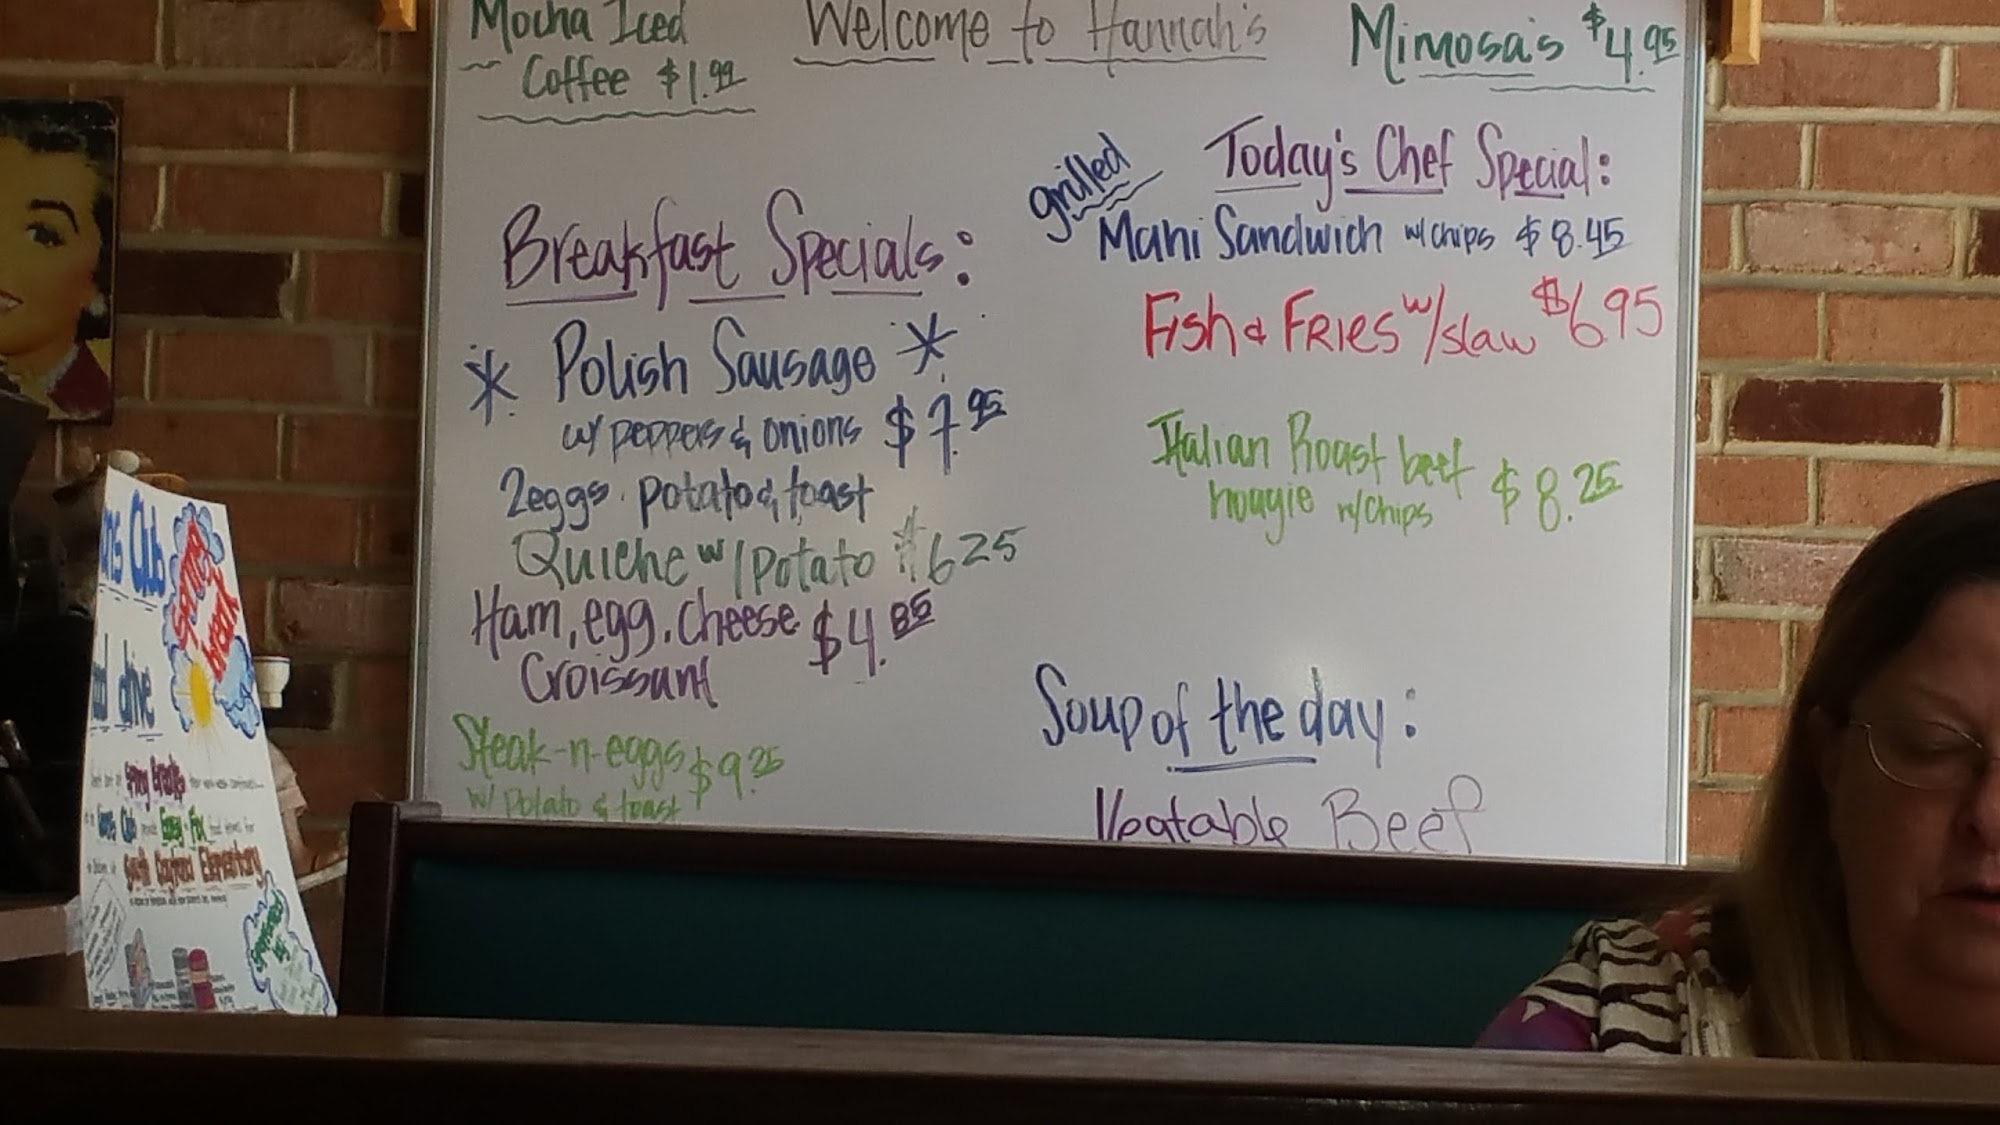 Mocha Iced
Coffee $1.99
Welcome to Hannah's
Mimosa's $4.95
Breakfast Specials:
* Polish Sausage *
w/ peppers & onions $7.95
2eggs. potato & toast
Quiche w/potato $6 25
Ham, egg, cheese $4.85
Croissant
Steak-n-eggs $9.25
w/ potato & toast
Today's Chef Special:
grilled
Mahi Sandwich w/chips $8.45
Fish & FRIES w/slaw $6.95
Italian Roast beef
hoagie w/chips $8.25
Soup of the day:
Veatable Beef
Club
spring
break
drive
Spring Break
Easy Fix
Elementary
Sponsored
by: